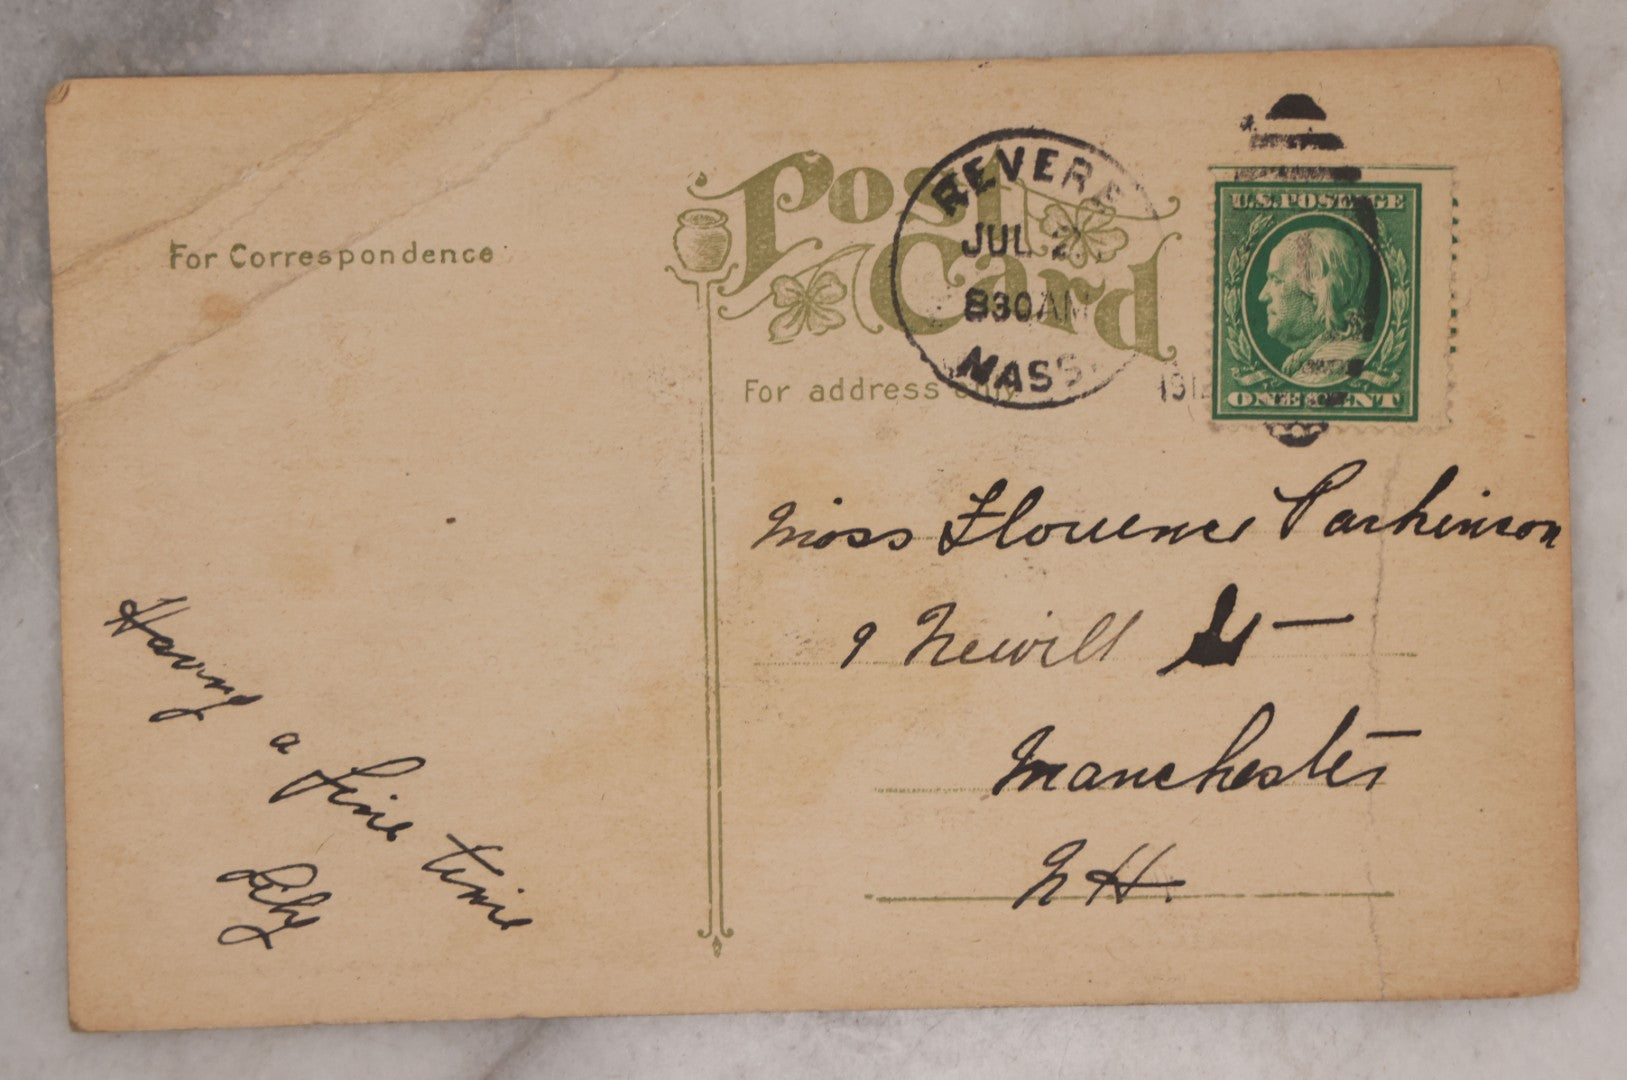 Post Card
For Correspondence
For address only
REVERE
JUL 2
830AM
MASS.
U.S. POSTAGE
ONE CENT
Miss Florence Parkinson
9 Newill St
Manchester
N H.
Having
a
fine time